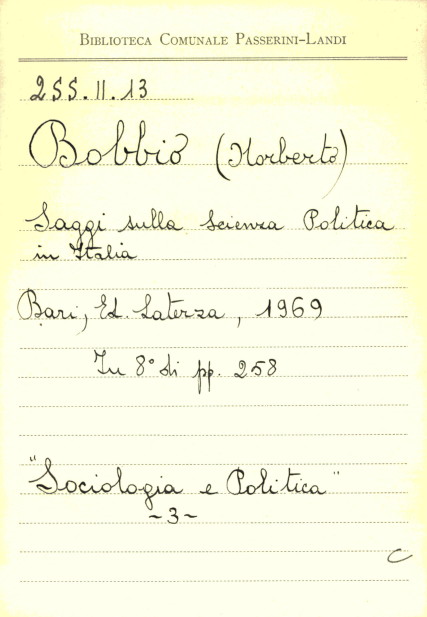 BIBLIOTECA COMUNALE PASSERINI-LANDI
255.II.13
Bobbio (Norberto)
Saggi sulla Scienza Politica
in Italia
Bari, Ed. Laterza, 1969
In 8° di pp. 258
"Sociologia e Politica"
-3-
C